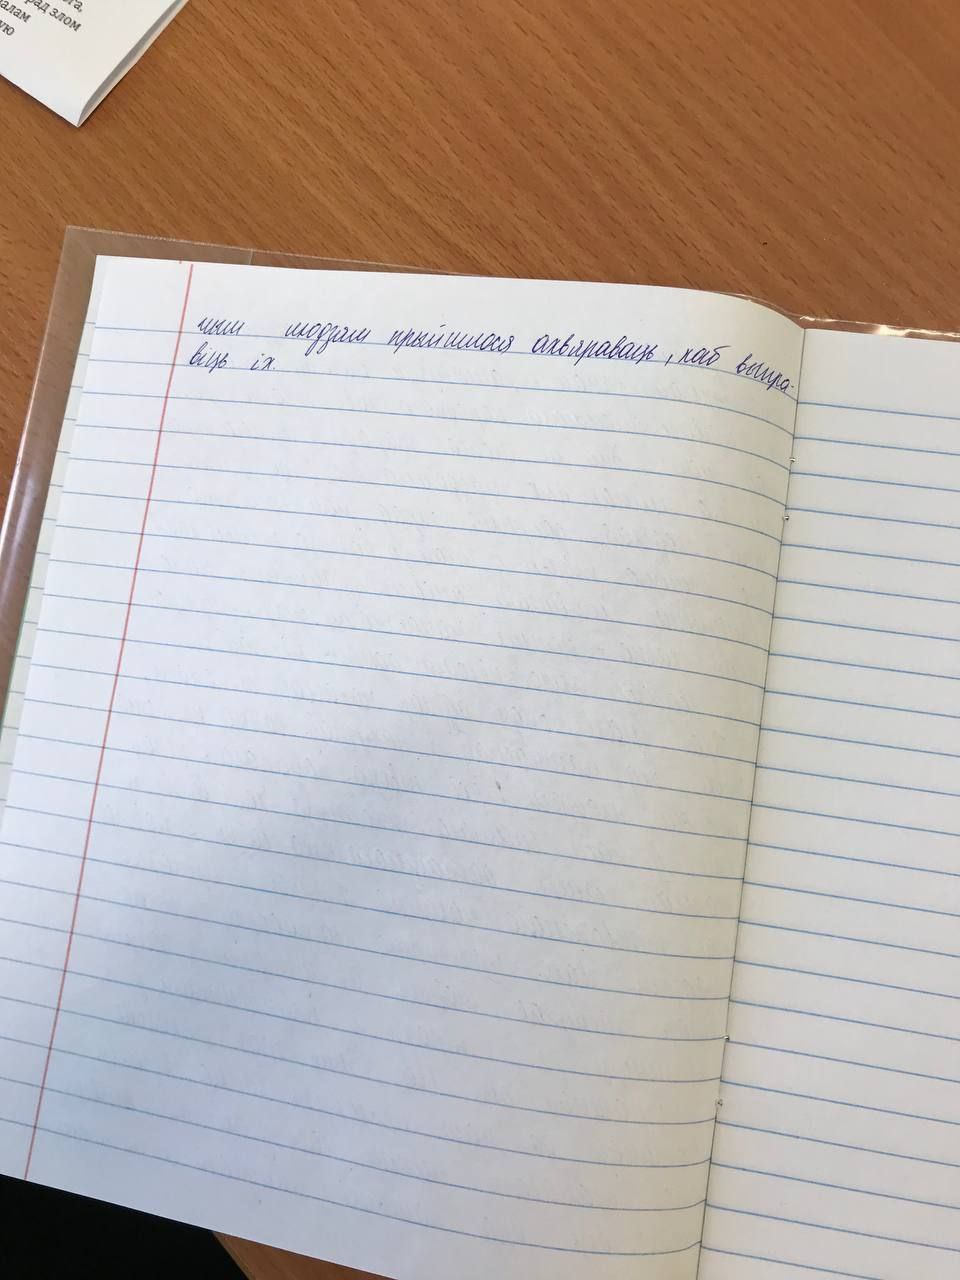 рад злом
алам
ую
ным людзям прыйшлося ахвяраваць, каб выпра-
віць іх.